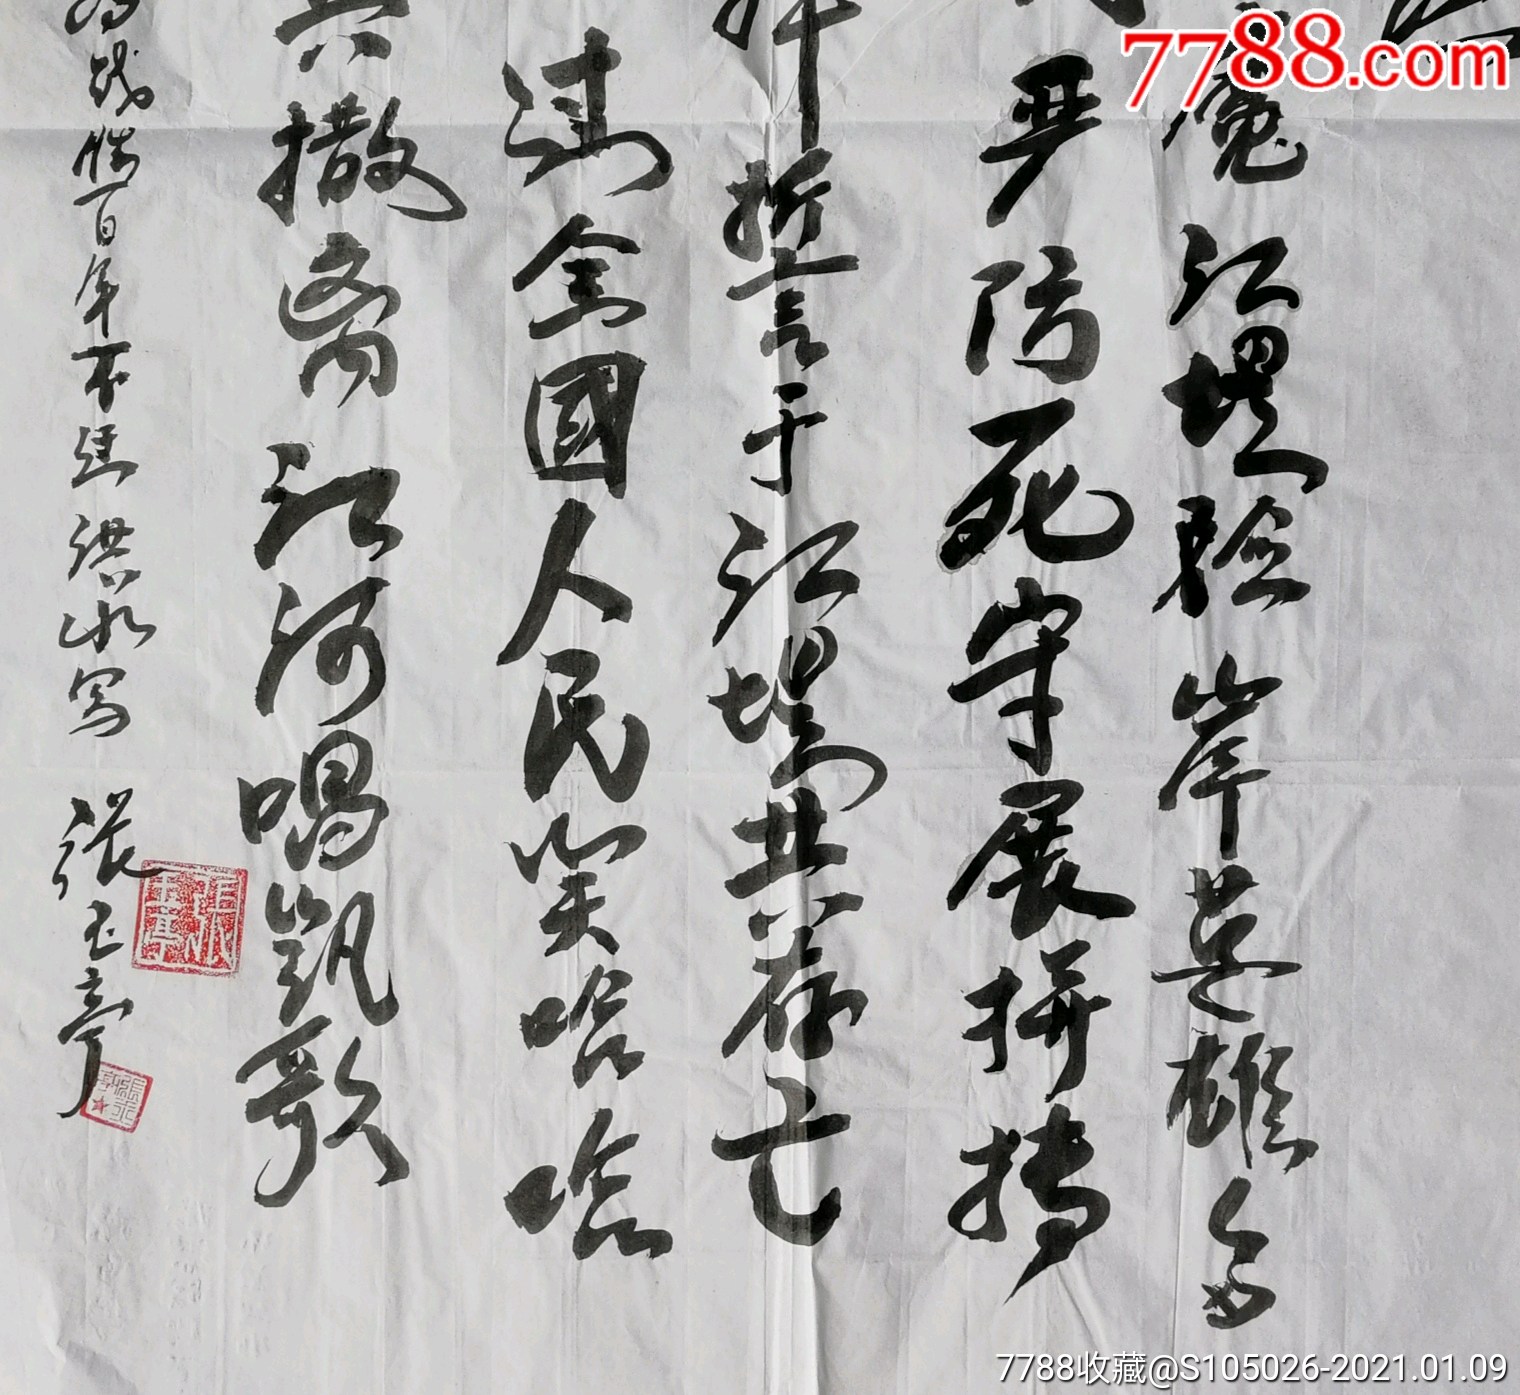 7788.com
魔江堤险岸英雄多
严防死守展拼搏
誓言于江堤共存亡
全国人民笑哈哈
撒离江河唱凯歌
战胜百年不遇洪水写 张玉亭
7788收藏@S105026-2021.01.09